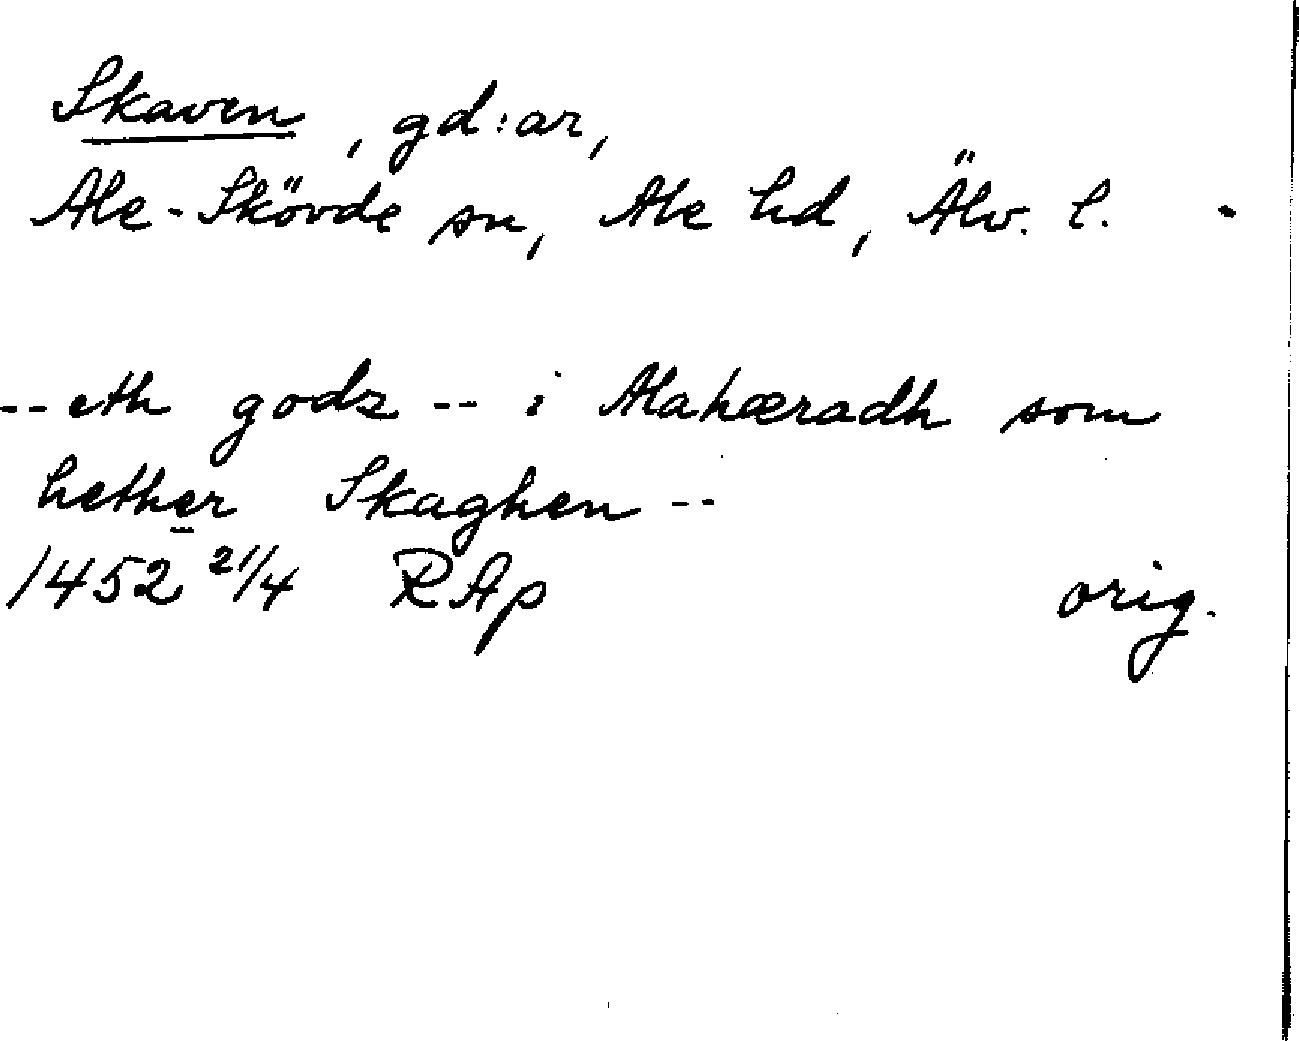 Skaven, gd:ar,
Ale-Skövde sn, Ale hd, Älv. l.
-- eth godz -- i Alahæradh som
hether Skaghen --
1452 21/4 RAp orig.